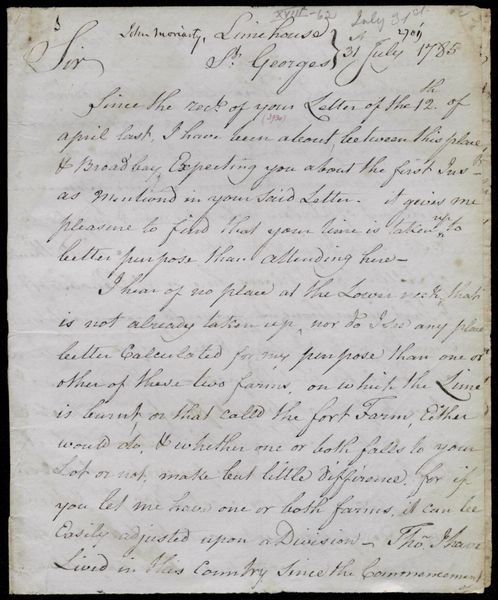 XVIII-62 July 31st
3 John Moriarty, Limehouse A 2701
Sir St. Georges } 31 July 1785
Since the rect. of your Letter of the 12th. of
(2930)
april last, I have been about, between this place
& Broadbay, Expecting you about the first Inst.
as Mentiond in your Said Letter. it gives me
pleasure to find that your time is taken up to
better purpose than attending here —
I hear of no place at the Lower neck, that
is not already taken up, nor do I See any place
better Calculated for my purpose than one or
other of these two farms, on which the Lime
is burnt, or that called the fort Farm, Either
would do, & whether one or both falls to your
Lot or not, make but little difference, for if
you let me have one or both farms, it can be
Easily adjusted upon a Division — Tho. I have
Lived in this Country Since the Commencement